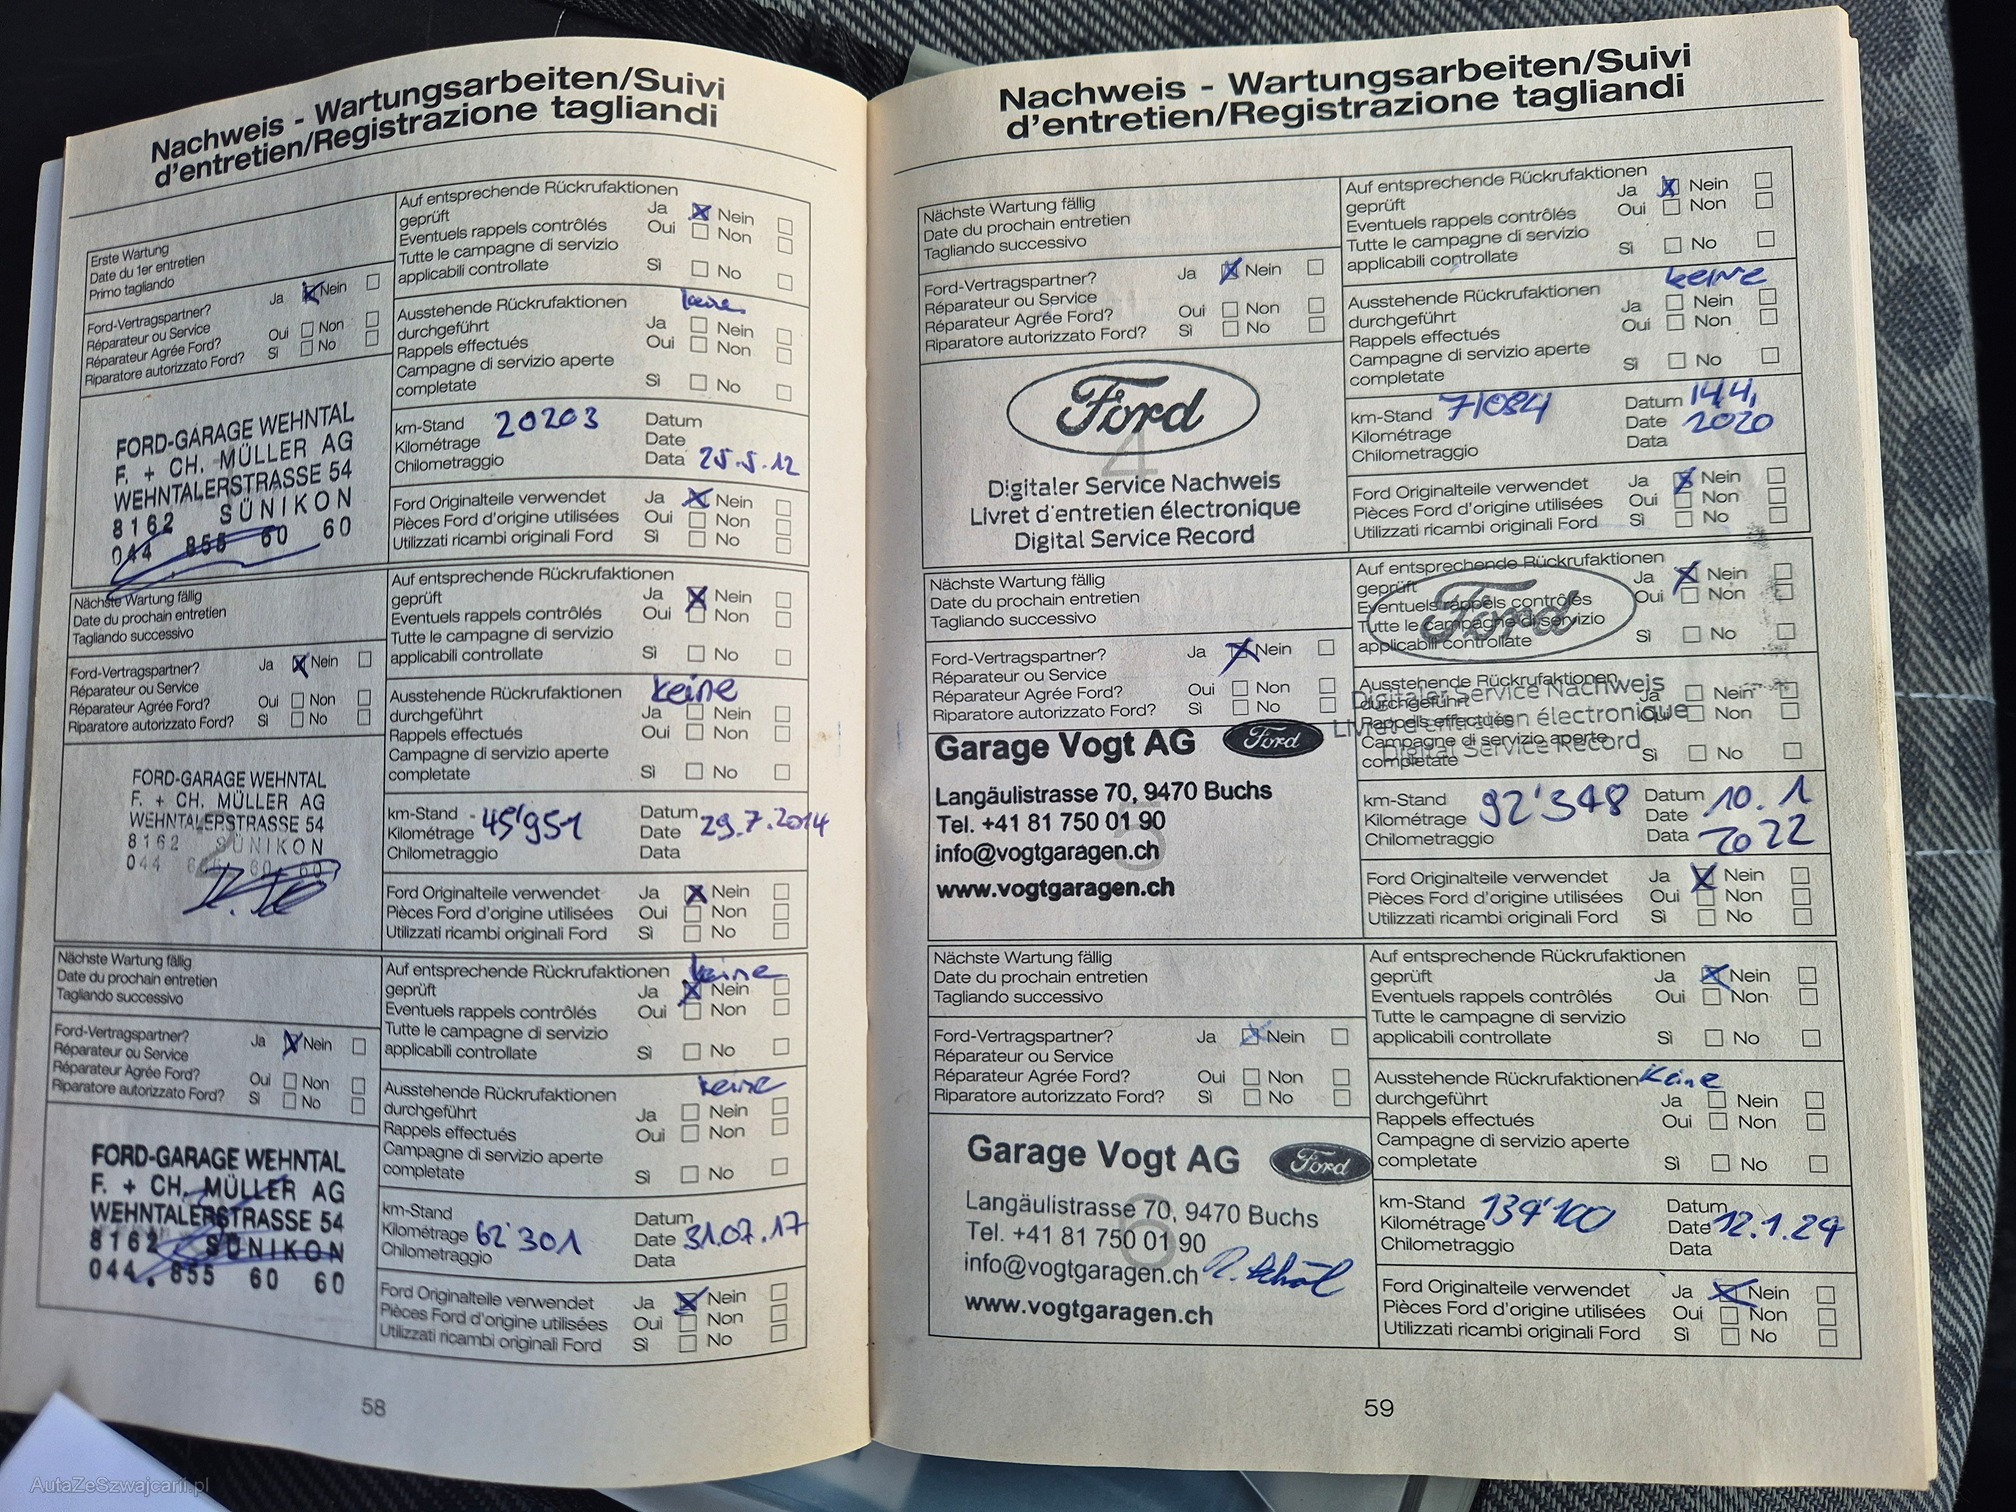 Nachweis - Wartungsarbeiten/Suivi
d'entretien/Registrazione tagliandi
Erste Wartung
Date du 1er entretien
Primo tagliando
Ford-Vertragspartner? Ja Nein
Réparateur ou Service
Réparateur Agrée Ford? Oui Non
Riparatore autorizzato Ford? Sì No
FORD-GARAGE WEHNTAL
F. + CH. MÜLLER AG
WEHNTALERSTRASSE 54
8162 SÜNIKON
044 855 60 60
Auf entsprechende Rückrufaktionen
geprüft Ja Nein
Eventuels rappels contrôlés Oui Non
Tutte le campagne di servizio
applicabili controllate Sì No
Ausstehende Rückrufaktionen keine
durchgeführt Ja Nein
Rappels effectués Oui Non
Campagne di servizio aperte
completate Sì No
km-Stand 20203 Datum
Kilométrage Date
Chilometraggio Data 25.5.12
Ford Originalteile verwendet Ja Nein
Pièces Ford d'origine utilisées Oui Non
Utilizzati ricambi originali Ford Sì No
Nächste Wartung fällig
Date du prochain entretien
Tagliando successivo
Ford-Vertragspartner? Ja Nein
Réparateur ou Service
Réparateur Agrée Ford? Oui Non
Riparatore autorizzato Ford? Sì No
FORD-GARAGE WEHNTAL
F. + CH. MÜLLER AG
WEHNTALERSTRASSE 54
8162 SÜNIKON
044 60 60
Auf entsprechende Rückrufaktionen
geprüft Ja Nein
Eventuels rappels contrôlés Oui Non
Tutte le campagne di servizio
applicabili controllate Sì No
Ausstehende Rückrufaktionen keine
durchgeführt Ja Nein
Rappels effectués Oui Non
Campagne di servizio aperte
completate Sì No
km-Stand 45'951 Datum
Kilométrage Date 29.7.2014
Chilometraggio Data
Ford Originalteile verwendet Ja Nein
Pièces Ford d'origine utilisées Oui Non
Utilizzati ricambi originali Ford Sì No
Nächste Wartung fällig
Date du prochain entretien
Tagliando successivo
Ford-Vertragspartner? Ja Nein
Réparateur ou Service
Réparateur Agrée Ford? Oui Non
Riparatore autorizzato Ford? Sì No
FORD-GARAGE WEHNTAL
F. + CH. MÜLLER AG
WEHNTALERSTRASSE 54
8162 SÜNIKON
044. 855 60 60
Auf entsprechende Rückrufaktionen keine
geprüft Ja Nein
Eventuels rappels contrôlés Oui Non
Tutte le campagne di servizio
applicabili controllate Sì No
Ausstehende Rückrufaktionen keine
durchgeführt Ja Nein
Rappels effectués Oui Non
Campagne di servizio aperte
completate Sì No
km-Stand Datum
Kilométrage 62'301 Date 31.07.17
Chilometraggio Data
Ford Originalteile verwendet Ja Nein
Pièces Ford d'origine utilisées Oui Non
Utilizzati ricambi originali Ford Sì No
58
Nachweis - Wartungsarbeiten/Suivi
d'entretien/Registrazione tagliandi
Nächste Wartung fällig
Date du prochain entretien
Tagliando successivo
Ford-Vertragspartner? Ja Nein
Réparateur ou Service
Réparateur Agrée Ford? Oui Non
Riparatore autorizzato Ford? Sì No
Ford
4
Digitaler Service Nachweis
Livret d'entretien électronique
Digital Service Record
Auf entsprechende Rückrufaktionen
geprüft Ja Nein
Eventuels rappels contrôlés Oui Non
Tutte le campagne di servizio
applicabili controllate Sì No
keine
Ausstehende Rückrufaktionen
durchgeführt Ja Nein
Rappels effectués Oui Non
Campagne di servizio aperte
completate Sì No
km-Stand 71084 Datum 14.4.
Kilométrage Date 2020
Chilometraggio Data
Ford Originalteile verwendet Ja Nein
Pièces Ford d'origine utilisées Oui Non
Utilizzati ricambi originali Ford Sì No
Nächste Wartung fällig
Date du prochain entretien
Tagliando successivo
Ford-Vertragspartner? Ja Nein
Réparateur ou Service
Réparateur Agrée Ford? Oui Non
Riparatore autorizzato Ford? Sì No
Garage Vogt AG Ford
Langäulistrasse 70, 9470 Buchs
Tel. +41 81 750 01 90
5
info@vogtgaragen.ch
www.vogtgaragen.ch
Auf entsprechende Rückrufaktionen
geprüft Ja Nein
Eventuels rappels contrôlés Oui Non
Ford
Tutte le campagne di servizio
applicabili controllate Sì No
Ausstehende Rückrufaktionen
Digitaler Service Nachweis
durchgeführt Ja Nein
Livret d'entretien électronique
Rappels effectués Oui Non
Campagne di servizio aperte
Digital Service Record
completate Sì No
km-Stand 92'348 Datum 10.1
Kilométrage Date
Chilometraggio Data 2022
Ford Originalteile verwendet Ja Nein
Pièces Ford d'origine utilisées Oui Non
Utilizzati ricambi originali Ford Sì No
Nächste Wartung fällig
Date du prochain entretien
Tagliando successivo
Ford-Vertragspartner? Ja Nein
Réparateur ou Service
Réparateur Agrée Ford? Oui Non
Riparatore autorizzato Ford? Sì No
Garage Vogt AG Ford
Langäulistrasse 70, 9470 Buchs
Tel. +41 81 750 01 90
6
info@vogtgaragen.ch
www.vogtgaragen.ch
Auf entsprechende Rückrufaktionen
geprüft Ja Nein
Eventuels rappels contrôlés Oui Non
Tutte le campagne di servizio
applicabili controllate Sì No
Ausstehende Rückrufaktionen Keine
durchgeführt Ja Nein
Rappels effectués Oui Non
Campagne di servizio aperte
completate Sì No
km-Stand 134'100 Datum
Kilométrage Date 12.1.24
Chilometraggio Data
Ford Originalteile verwendet Ja Nein
Pièces Ford d'origine utilisées Oui Non
Utilizzati ricambi originali Ford Sì No
59
AutaZeSzwajcarii.pl